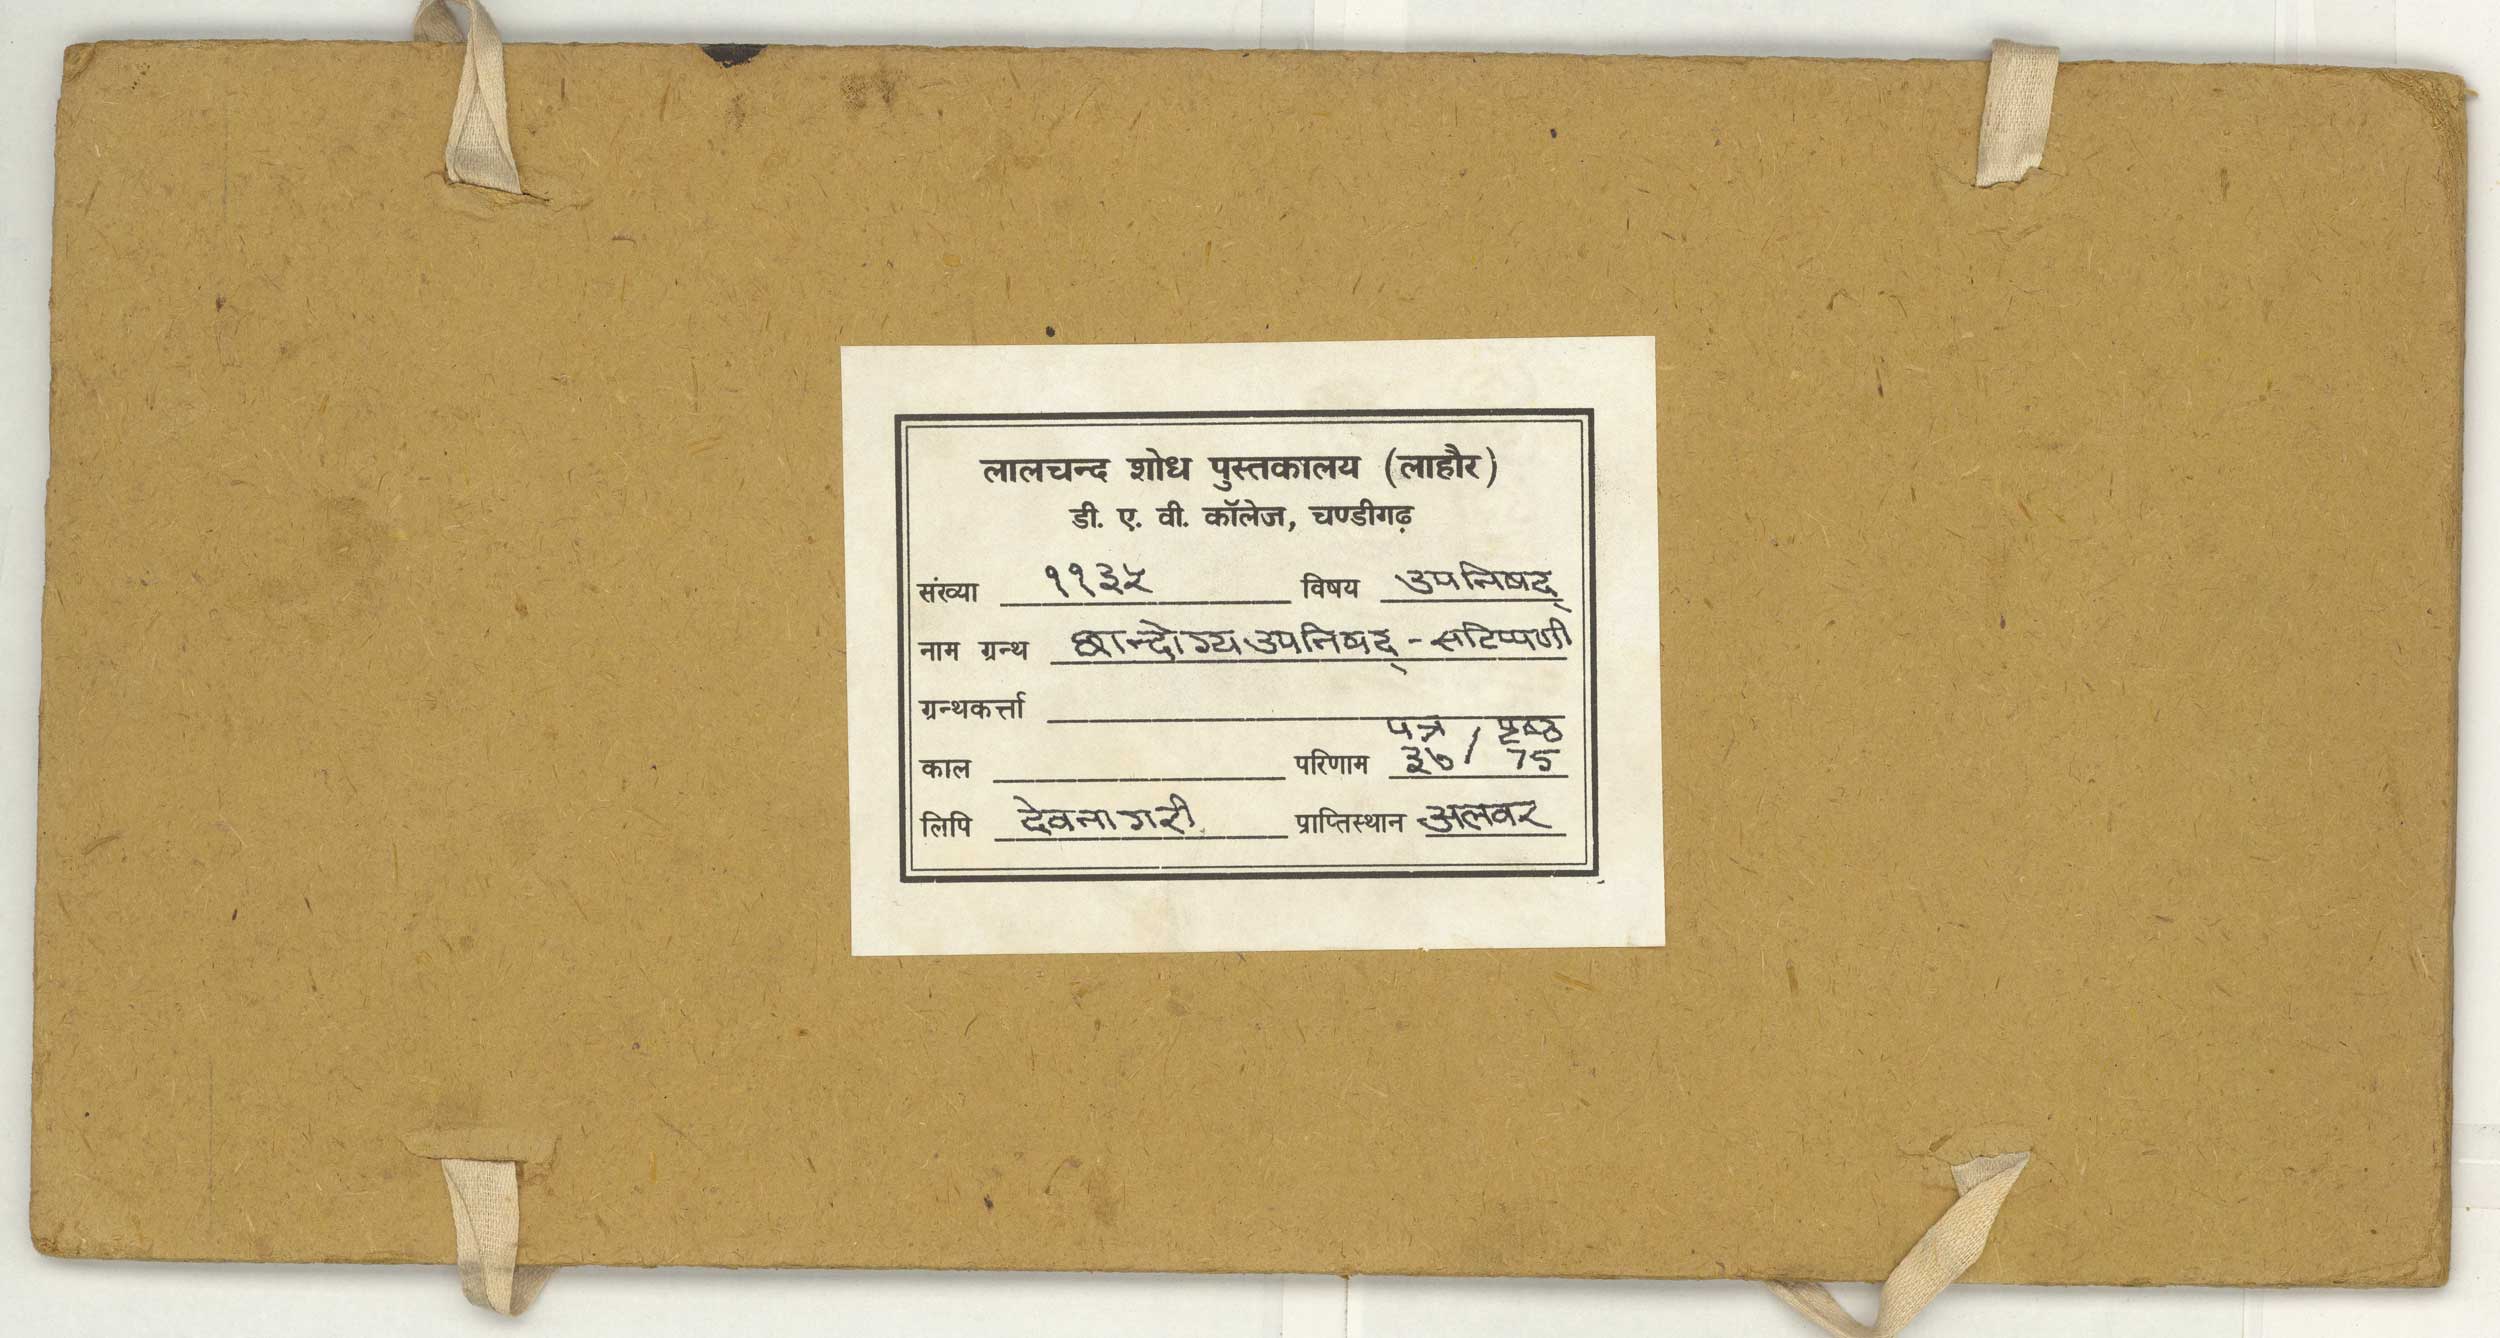 लालचन्द शोध पुस्तकालय (लाहौर)
डी. ए. वी. कॉलेज, चण्डीगढ़
संख्या ११३५ विषय उपनिषद्
नाम ग्रन्थ छान्दोग्य उपनिषद् - सटिप्पणी
ग्रन्थकर्त्ता
पत्र / पृष्ठ
काल परिणाम ३७ / 75
लिपि देवनागरी प्राप्तिस्थान अलवर